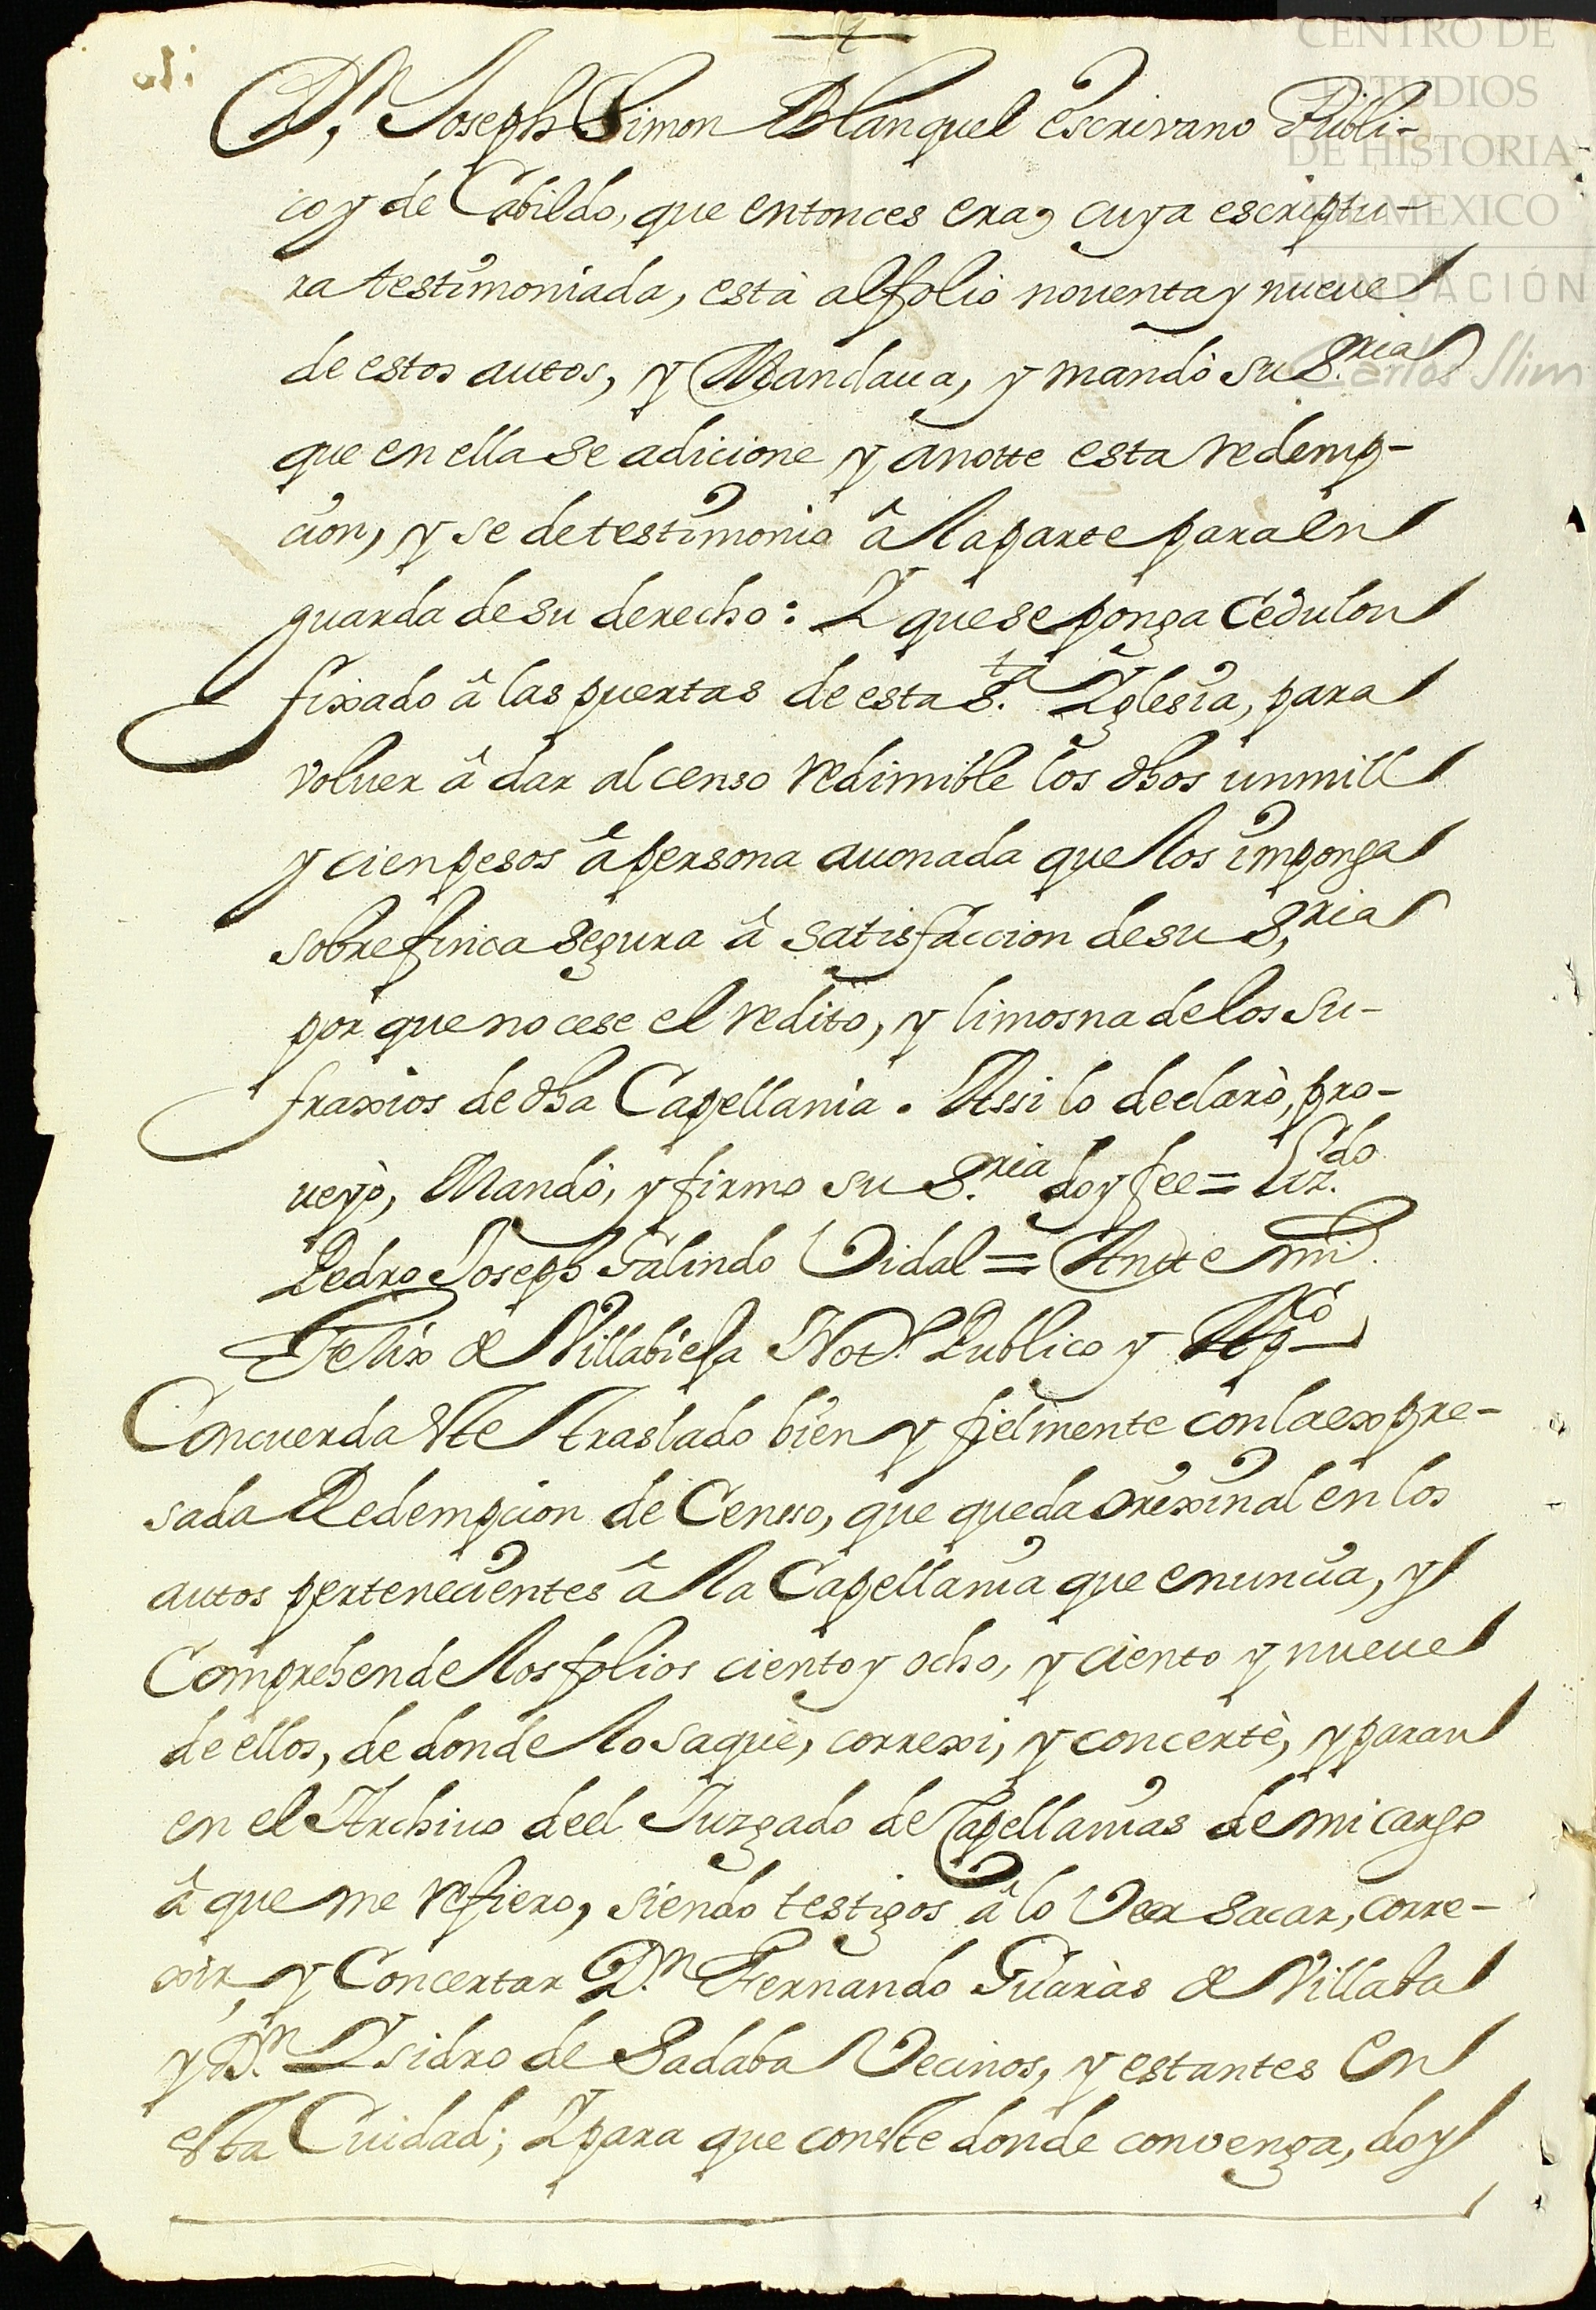 CENTRO DE
ESTUDIOS
DE HISTORIA
DE MEXICO
FUNDACIÓN
Carlos Slim
Dn. Joseph Simon Blanquel escrivano Publi-
co y de Cabildo, que entonces era, cuya escriptu-
ra testimoniada, està al folio nouenta y nueue
de estos autos, y Mandaua, y mandò su S.ria
que en ella se adicione y anotte esta redemp-
cion, y se de testimonio â la parte para en
guarda de su derecho: Y que se ponga Cedulon
fixado â las puertas de esta S.ta Yglesia, para
voluer â dar al censo redimible los dhos un mill
y cien pesos â persona auonada que los imponga
sobre finca segura â satisfaccion de su S,ria
por que no cese el redito, y limosna de los su-
fraxios de dha Capellania. Assi lo declarò, pro-
ueyò, Mandò, y firmo su S.ria doy fee = Liz.do
Pedro Joseph Galindo Vidal = Antte mi.
Felix de Villabiela Not.o Publico y App.co
Concuerda este traslado bien y fielmente con la expre-
sada Redempcion de Censso, que queda orixinal en los
autos pertenecientes â la Capellania que enuncia, y
Comprehende los folios ciento y ocho, y ciento y nueue
de ellos, de donde lo saquè, correxi, y concertè, y paran
en el Archiuo deel Juzgado de Capellanias de mi cargo
â que me refiero, siendo testigos â lo Veer sacar, corre-
xir, y Concertar D.n Fernando Guaràs de Villaba
y D.n Ysidro de Sadaba Vecinos, y estantes en
esta Cuidad; Y para que conste donde convenga, doy